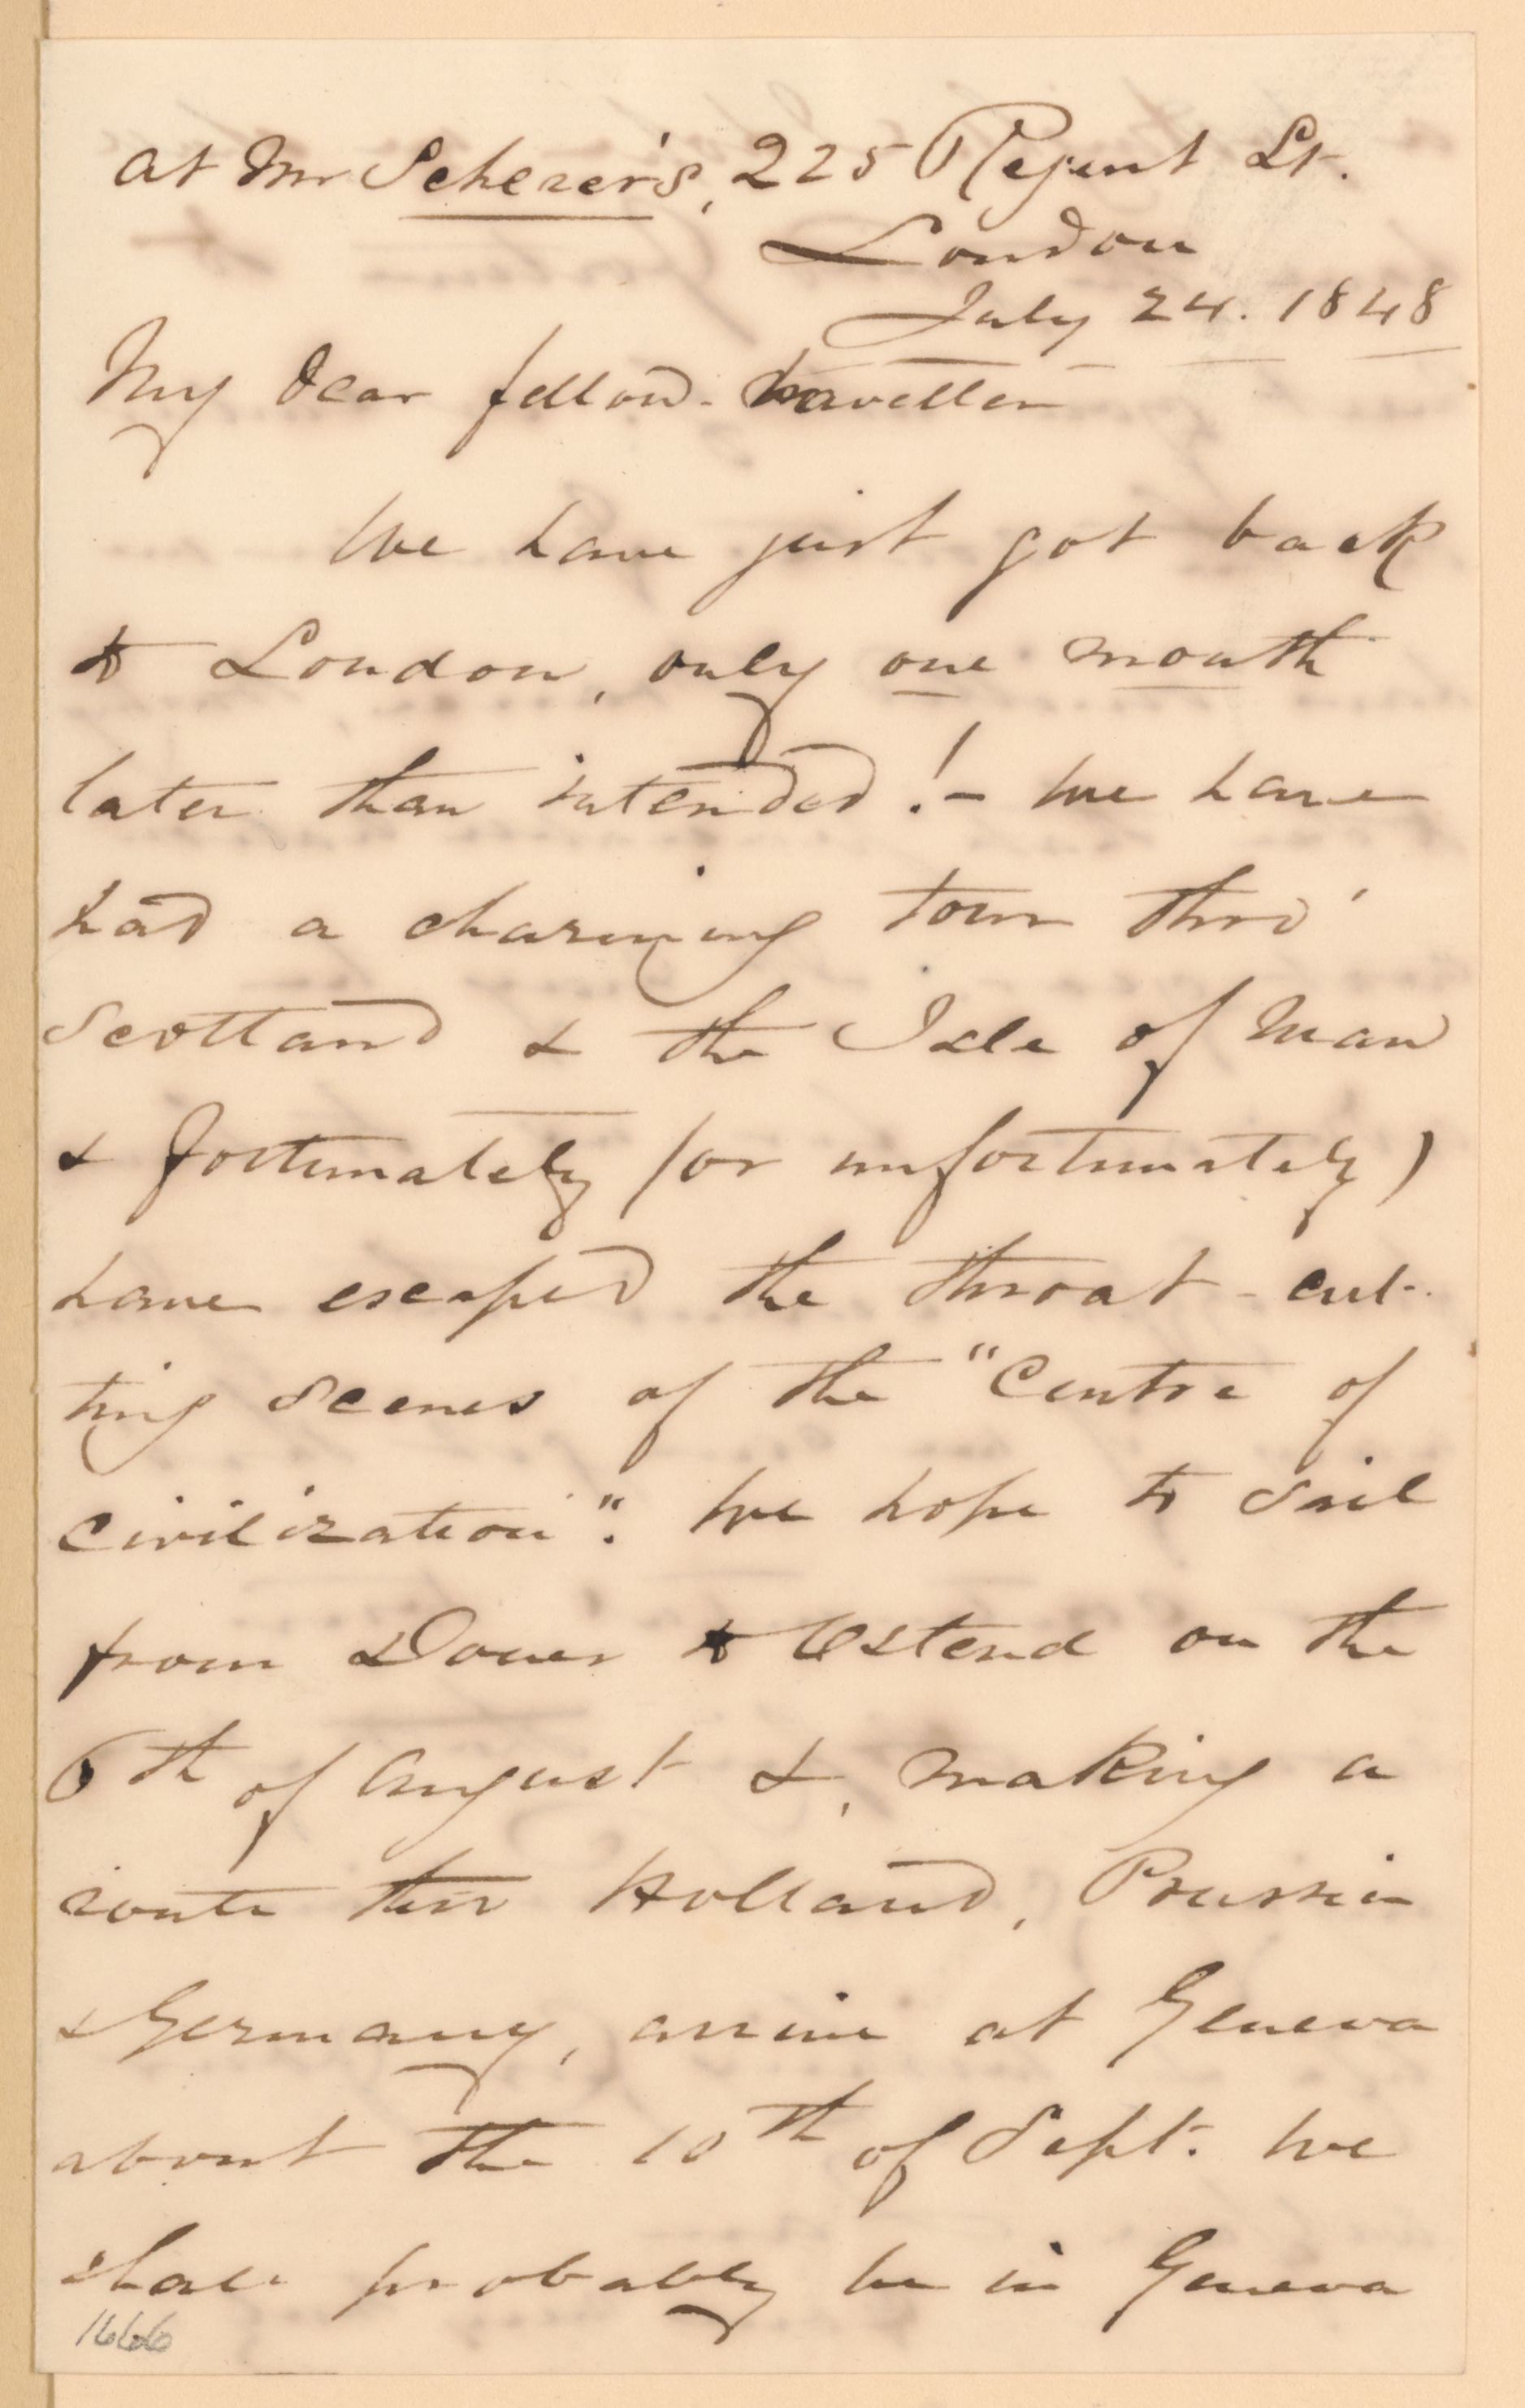 at Mr Scherer's, 225 Regent St.
London
July 24. 1848
My dear fellow-traveller
We have just got back
to London, only one month
later than intended!- We have
had a charming tour thro'
Scotland & the Isle of Man
& fortunately (or unfortunately)
have escaped the throat-cut-
ting scenes of the "Centre of
Civilization". We hope to sail
from Dover to Ostend on the
6th of August &, making a
route thro Holland, Prussia
& Germany, arrive at Geneva
about the 10th of Sept. We
shall probably be in Geneva
1666